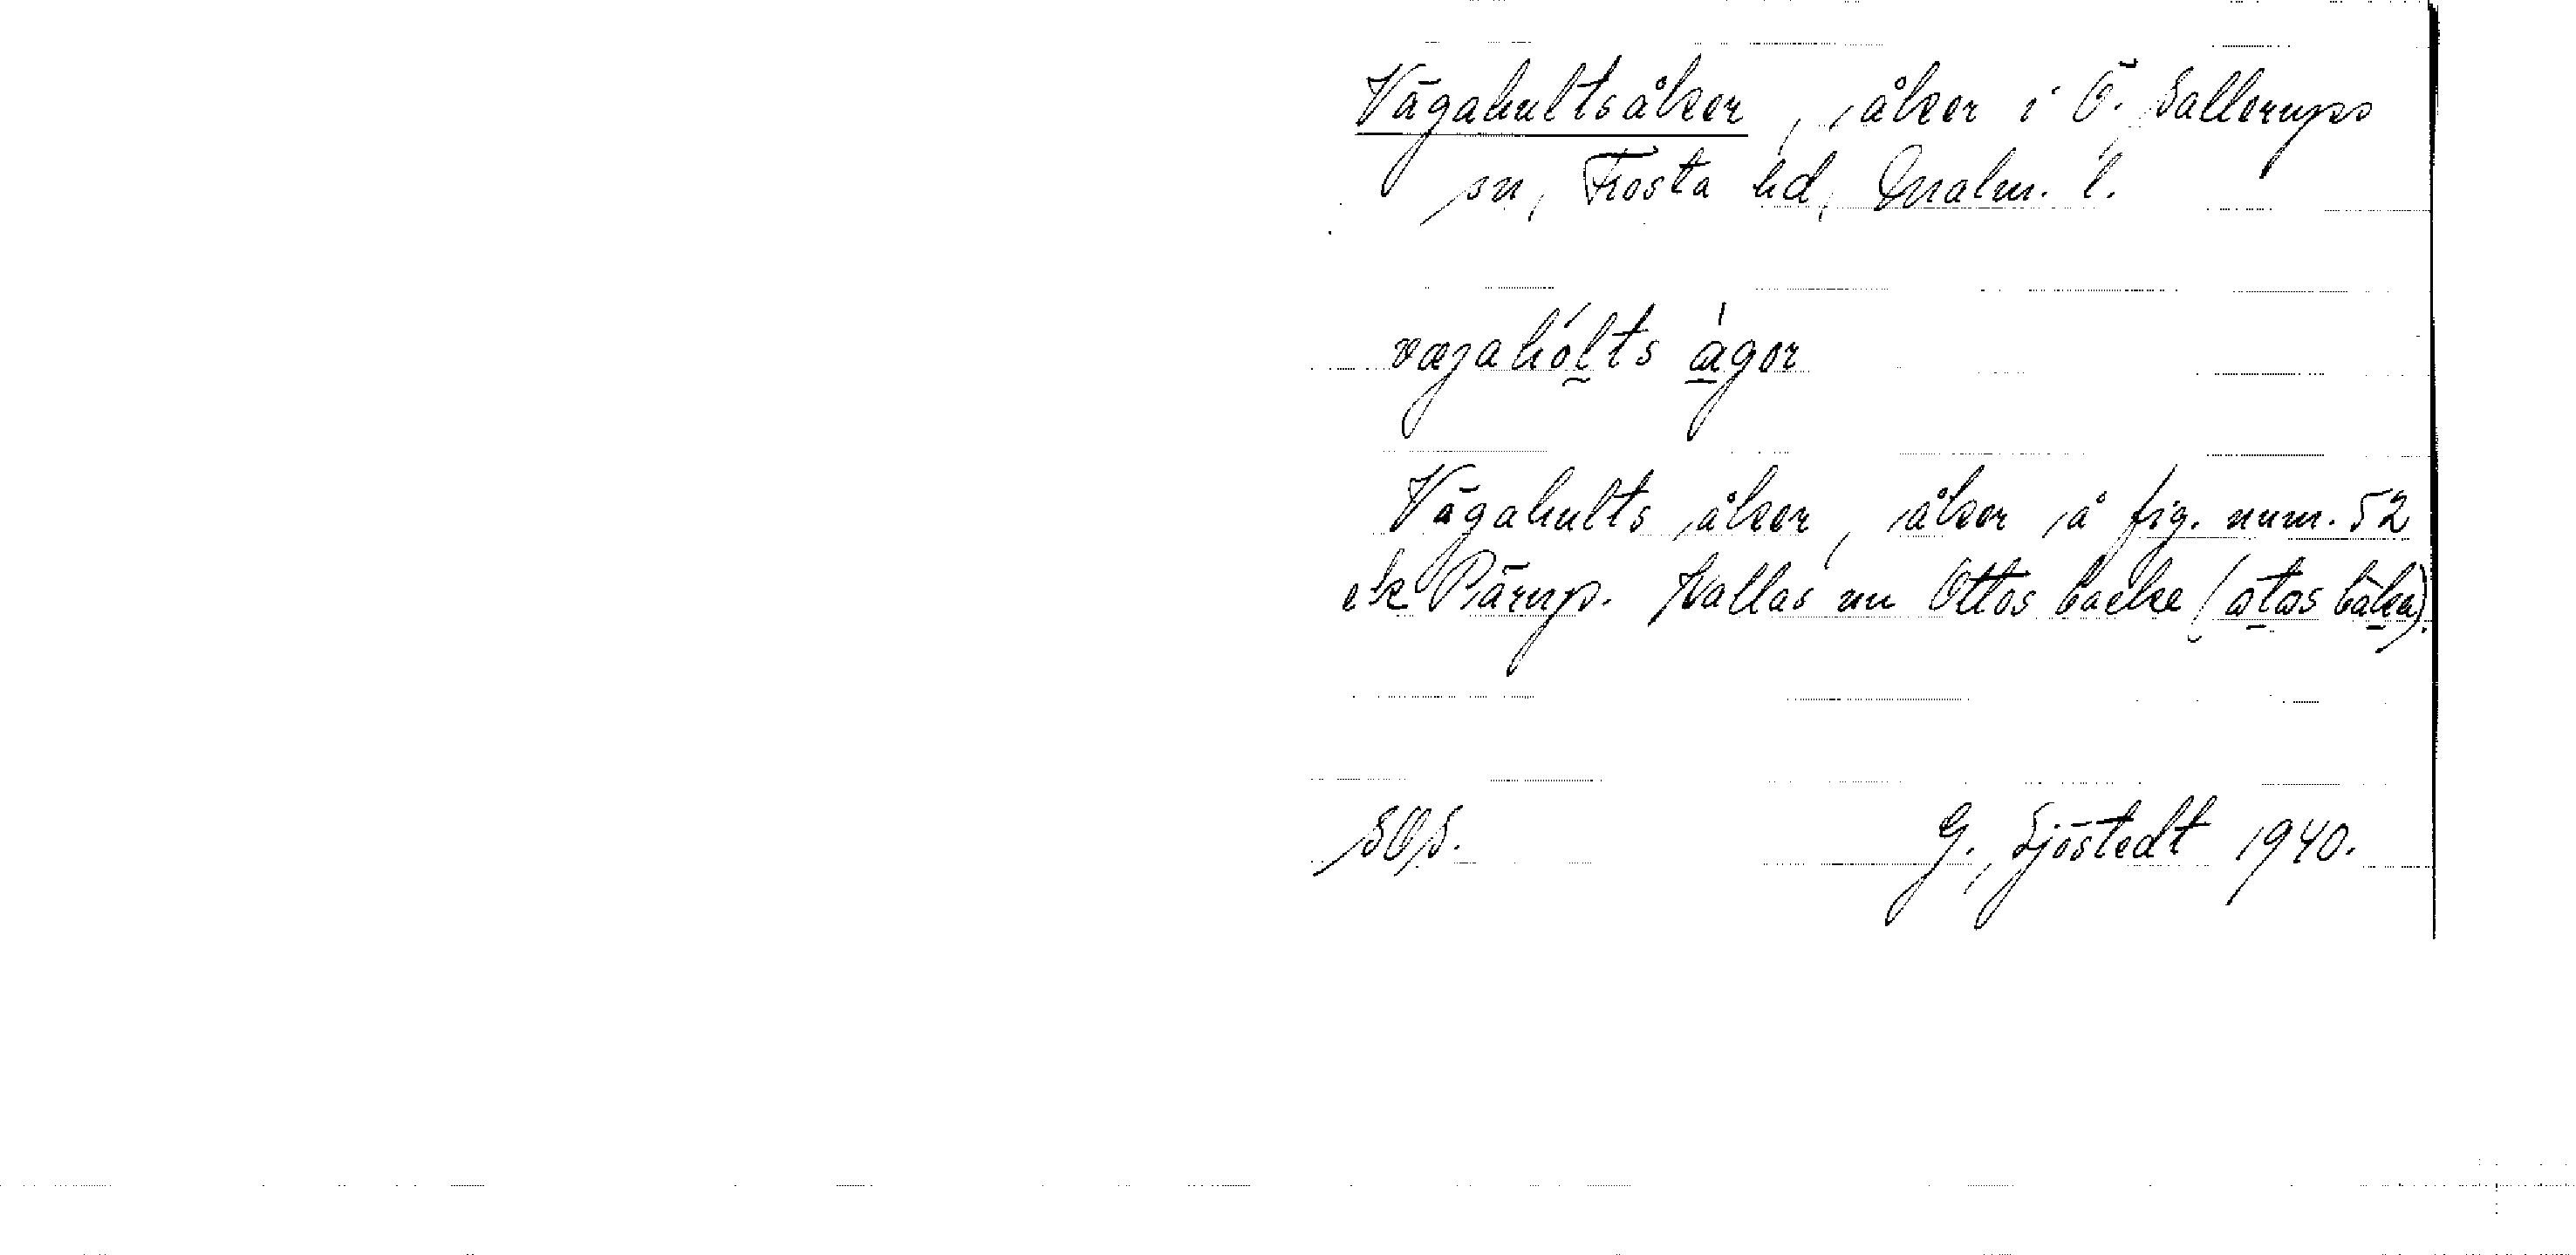 Vägahultsåker, åker i Ö. Sallerups
sn, Frosta hd, Malm. l.
væjahólts ágor
Vägahults åker, åker å fig. num. 52
ek Pärup. Kallas nu Ottos backe (otos baka).
SOS. G. Sjöstedt 1940.